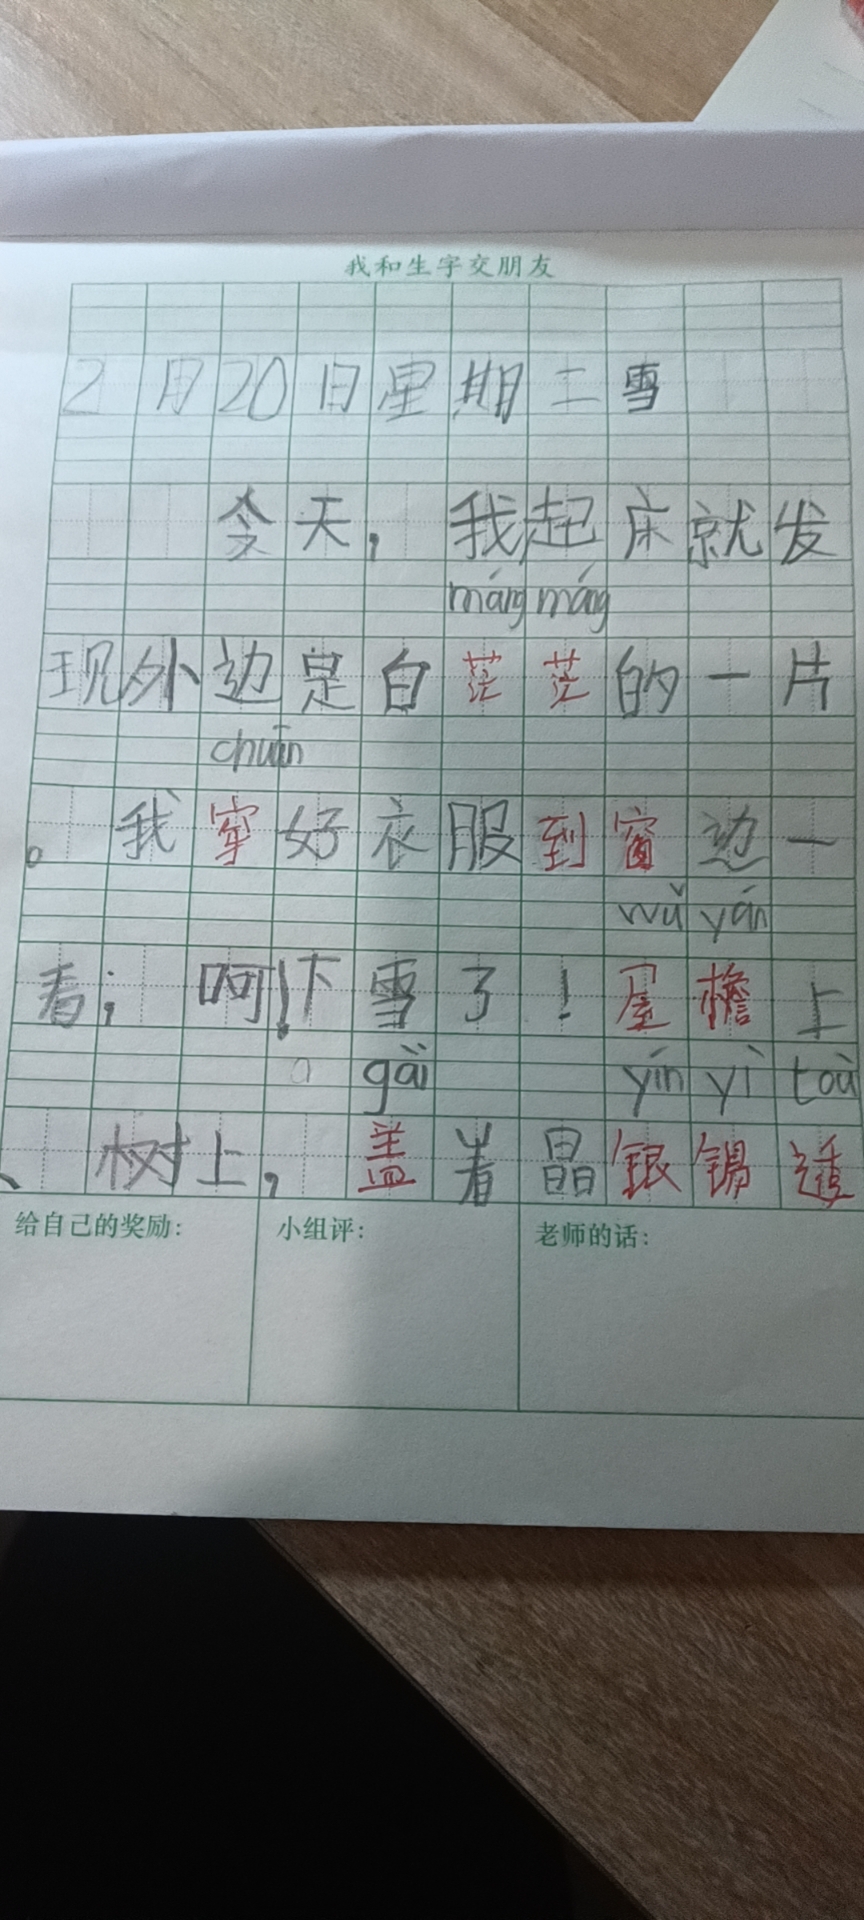 我和生字交朋友
2月20日星期二雪
今天，我起床就发
máng máng
现外边是白茫茫的一片
chuān
。我穿好衣服到窗边一
wǔ yán
看；呵！下雪了！屋檐上
gài yín yì toù
、树上，盖着晶银锡透
给自己的奖励： 小组评： 老师的话：